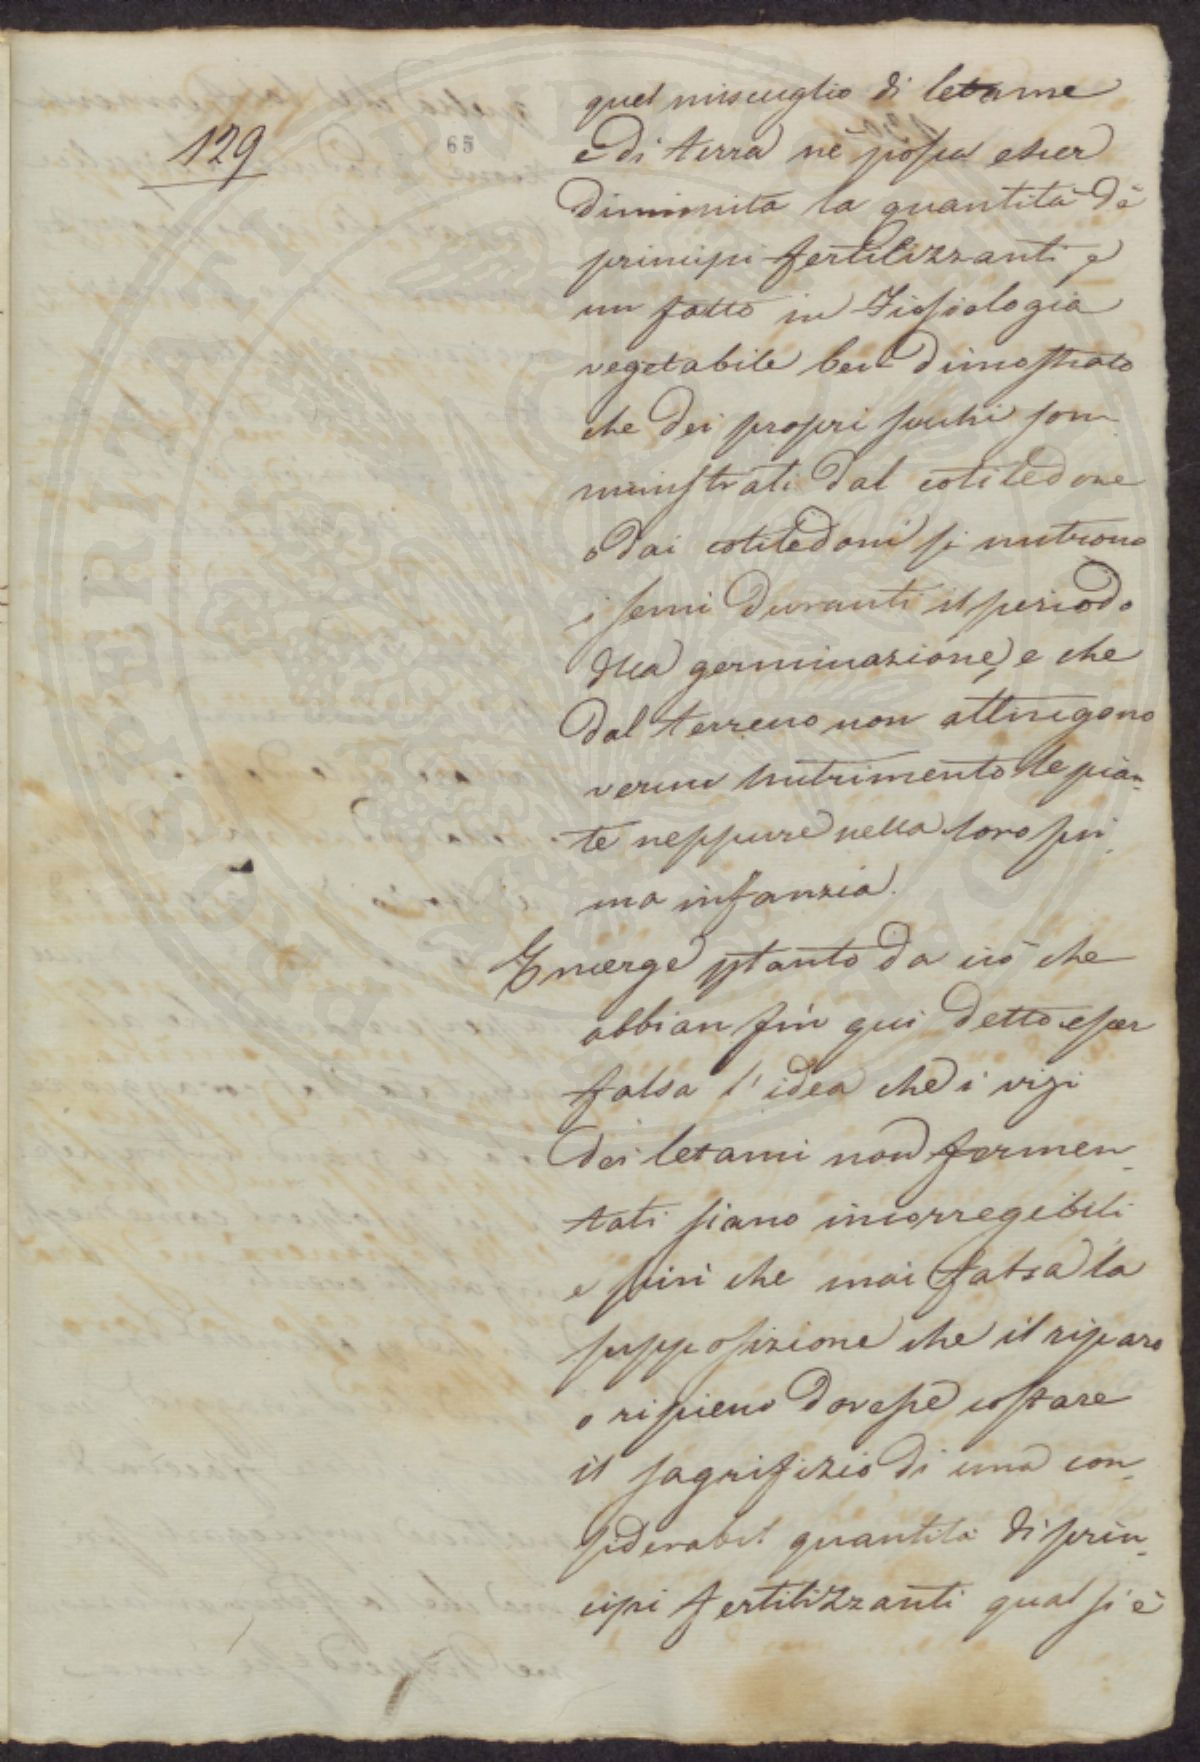 129
65
quel miscuglio di letame
e di terra ne possa esser
diminuita la quantità de'
principi fertilizzanti, e
un fatto in Fisiologia
vegetabile ben dimostrato
che dei propri succhi som-
ministrati dal cotiledone
o dai cotiledoni si nutrono
i semi duranti il periodo
della germinazione, e che
dal terreno non attingono
verun nutrimento le pian-
te neppure nella loro pri-
ma infanzia.
Emerge ptanto da ciò che
abbian fin qui detto esser
falsa l'idea che i vizi
dei letami non fermen-
tati siano incorregibili
e più che mai falsa la
supposizione che il riparo
o ripieno dovesse costare
il sagrifizio di una con-
siderabil quantità di prin-
cipi fertilizzanti qual si è